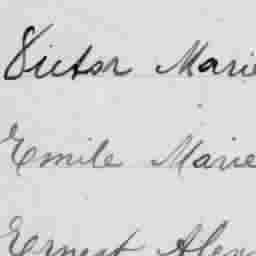 Victor Marie
Emile Marie
Ernest Alex